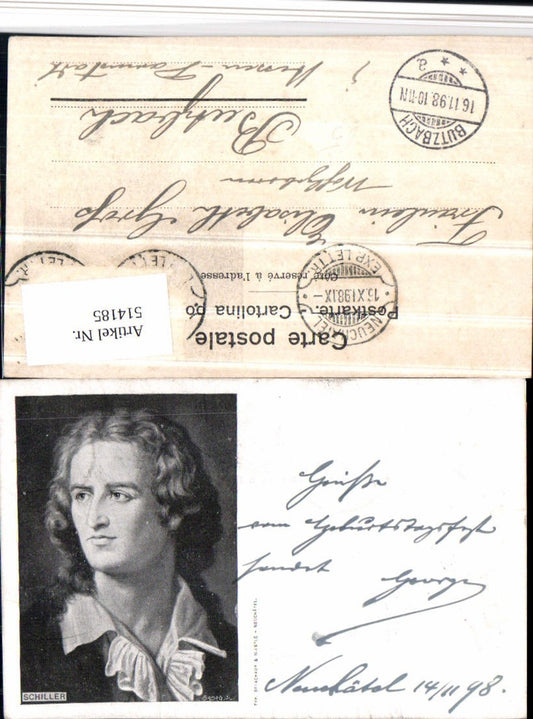 Carte postale
Postkarte. Cartolina po
Côté réservé à l'adresse
NEUCHATEL
EXP. LETTR.
15.XI.98.IX
Fräulein Elisabeth Groß
Butzbach
Hessen-Darmstadt
BUTZBACH
16.11.98.10-11N
* * a.
Artikel Nr.
514185
Grüße
vom Geburtstagsfest
sendet George
Neuchâtel 14/11 98.
SCHILLER